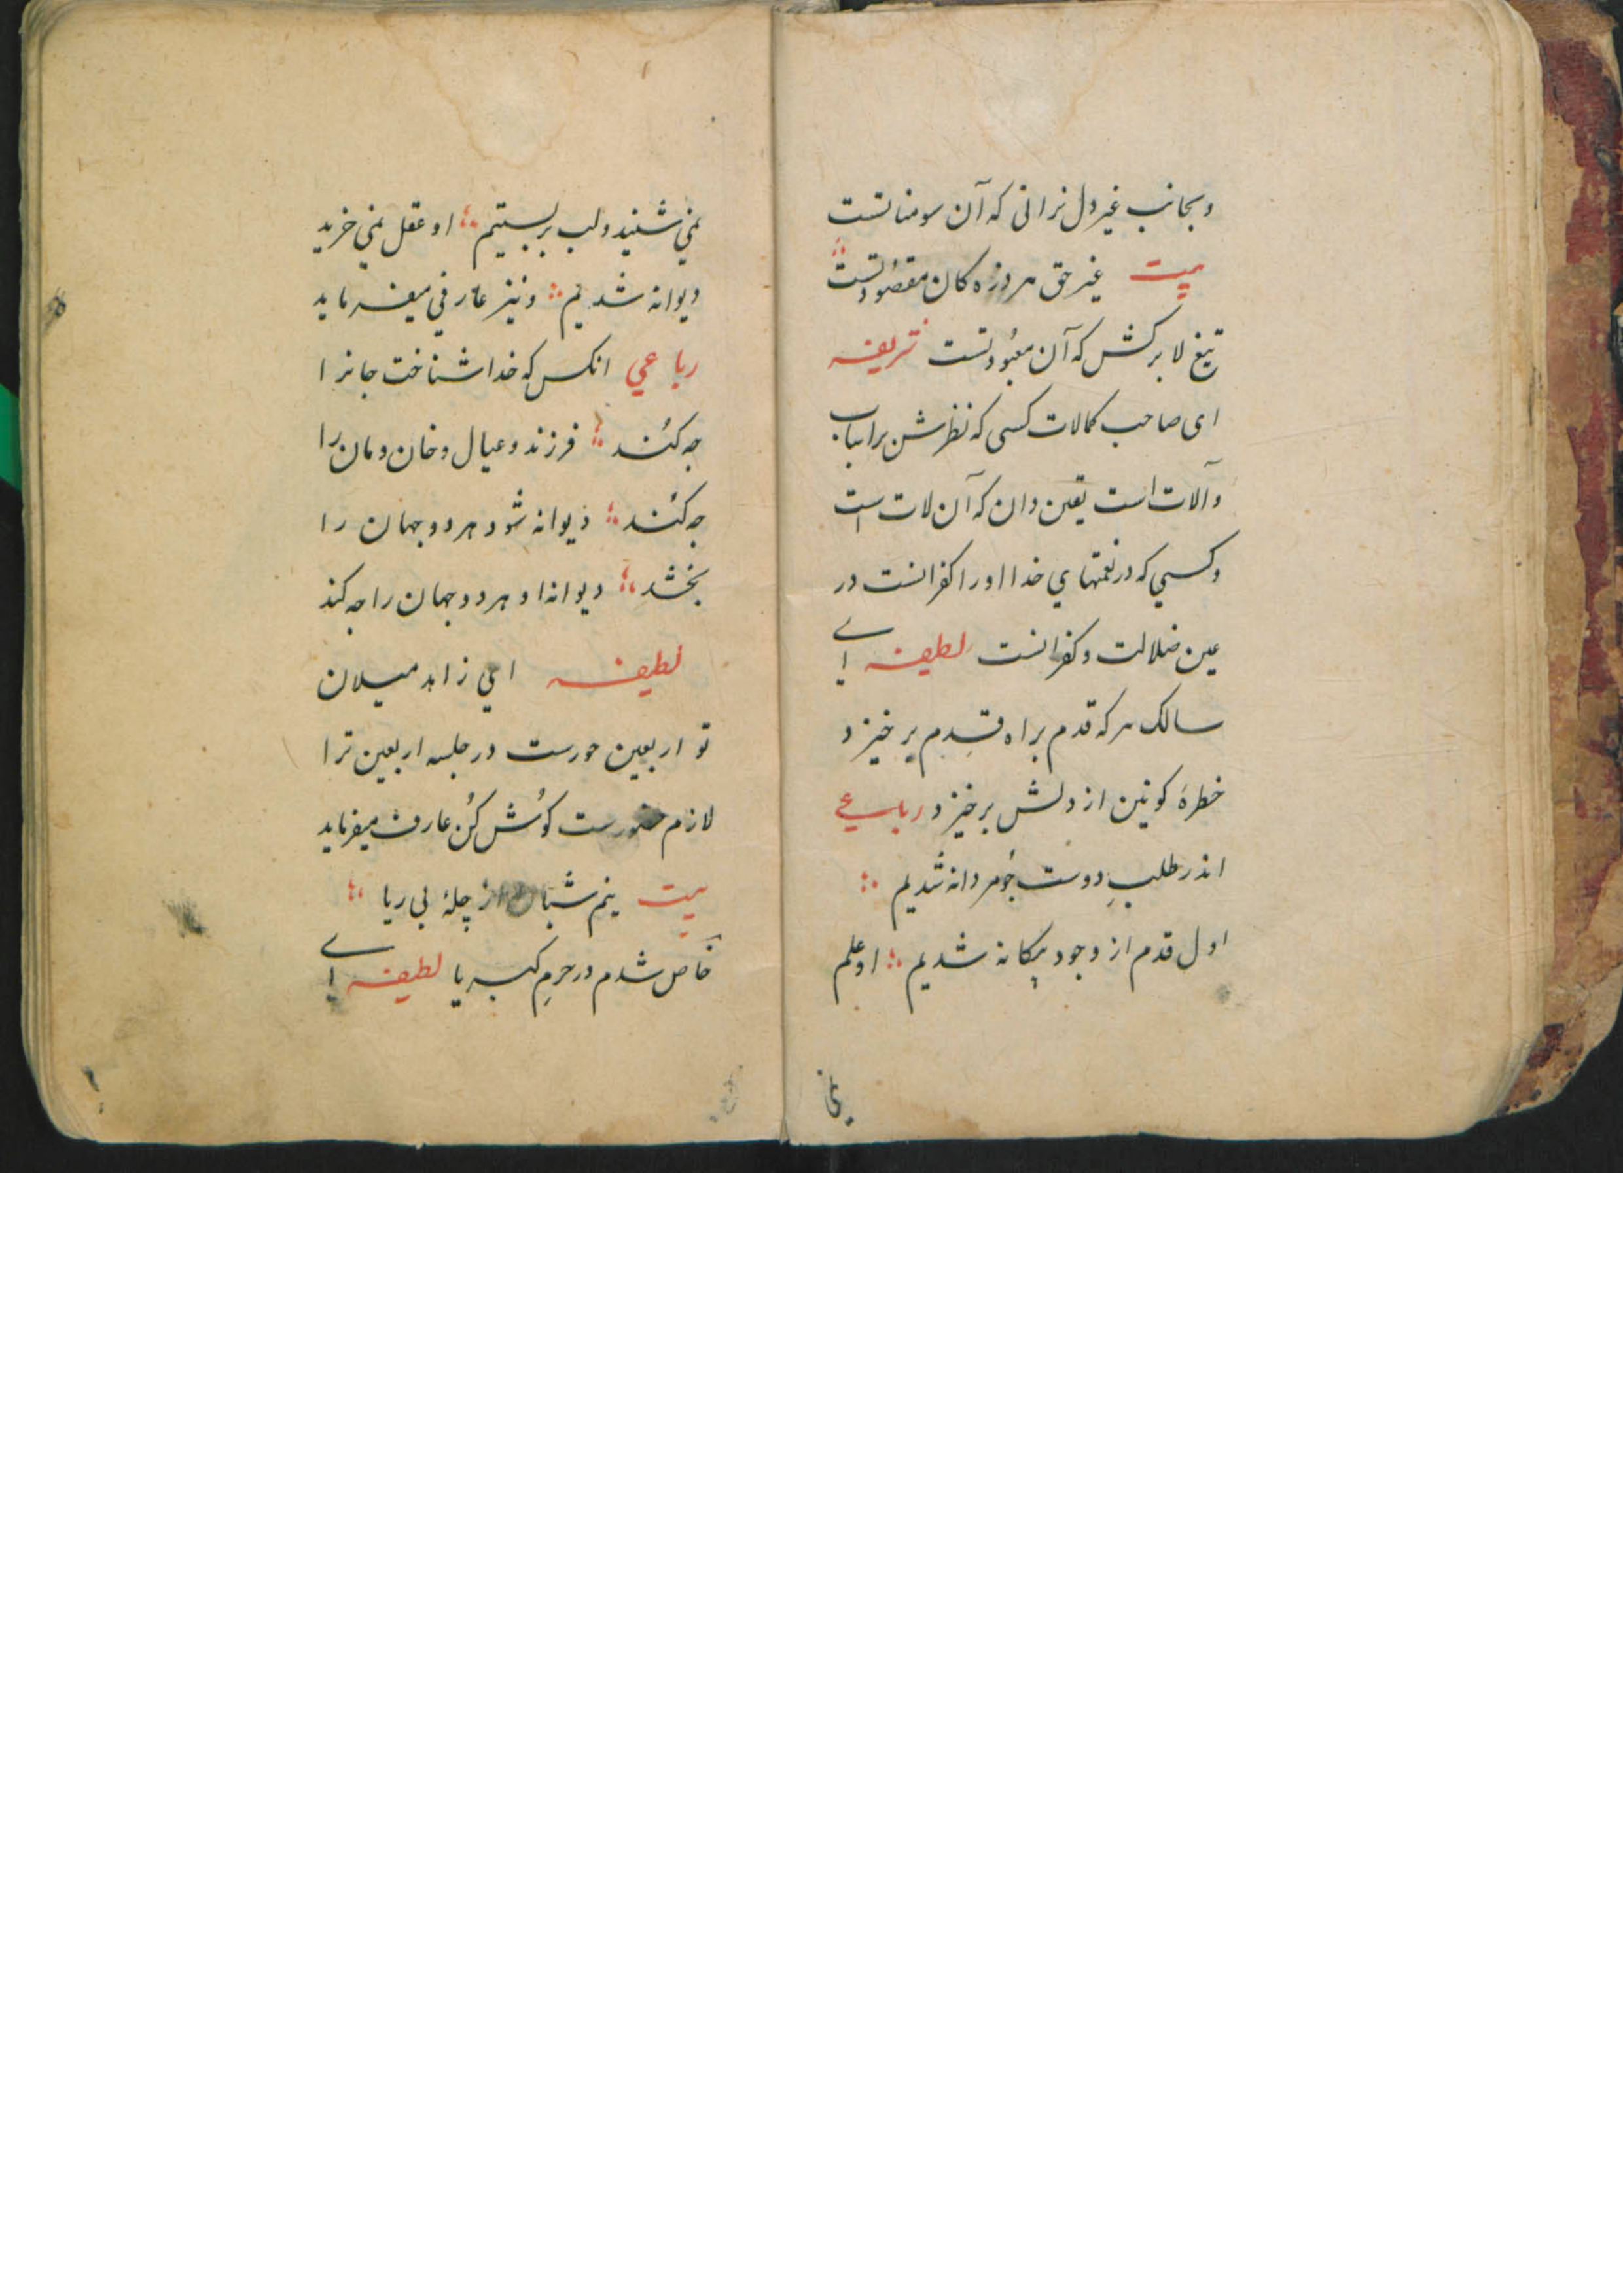 وبجانب غیر دل نرانی که آن سومناتست
بیت غیر حق هر ذره کان مقصود تست
تیغ لا برکش که آن معبود تست شریفه
ای صاحب کمالات کسی که نظرش براسباب
وآلات است یقین دان که آن لات است
وکسیي که در نعمتهاي خدا اورا کفرانست در
عین ضلالت وکفرانست لطیفه اے
سالک هر که قدم براه قدم بر خیزد
خطرهٔ کونین از دلش برخیزد رباعے
اندر طلبِ دوست چو مردانه شدیم
اول قدم از وجود بیکانه شدیم او علم
نمي شنید ولب بر بستیم او عقل نمي خرید
دیوانه شدیم ونیز عارفي میفرماید
رباعي انکس که خدا شناخت جانرا
چه کند فرزند وعیال وخان ومان را
چه کند دیوانه شود هر دو جهان را
بخشد دیوانه او هر دو جهان را چه کند
لطیفه اي زاهد میلان
تو اربعین حورست در جلسه اربعین ترا
لازم حضورست کوش کن عارف میفرماید
بیت نیم شبان از چلهٔ بی ریا
خاص شدم در حرمِ کبریا لطیفه اے
نمي